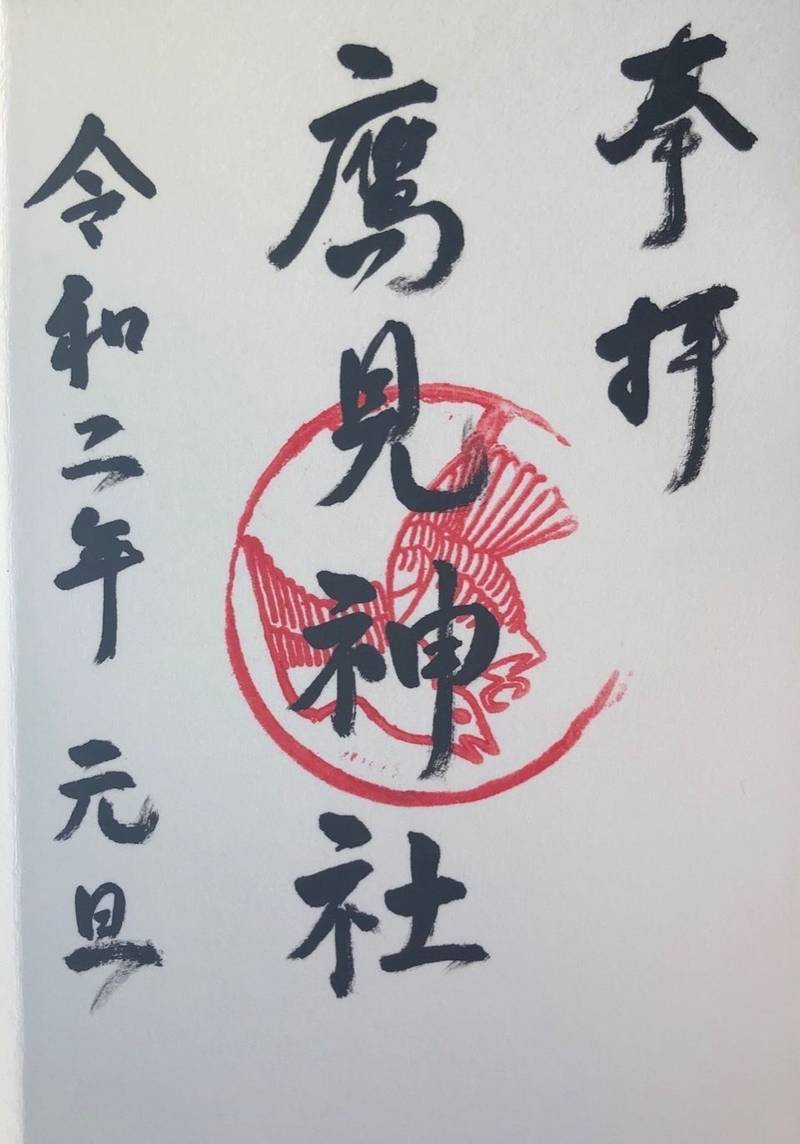 奉拝
鷹見神社
令和二年 元旦